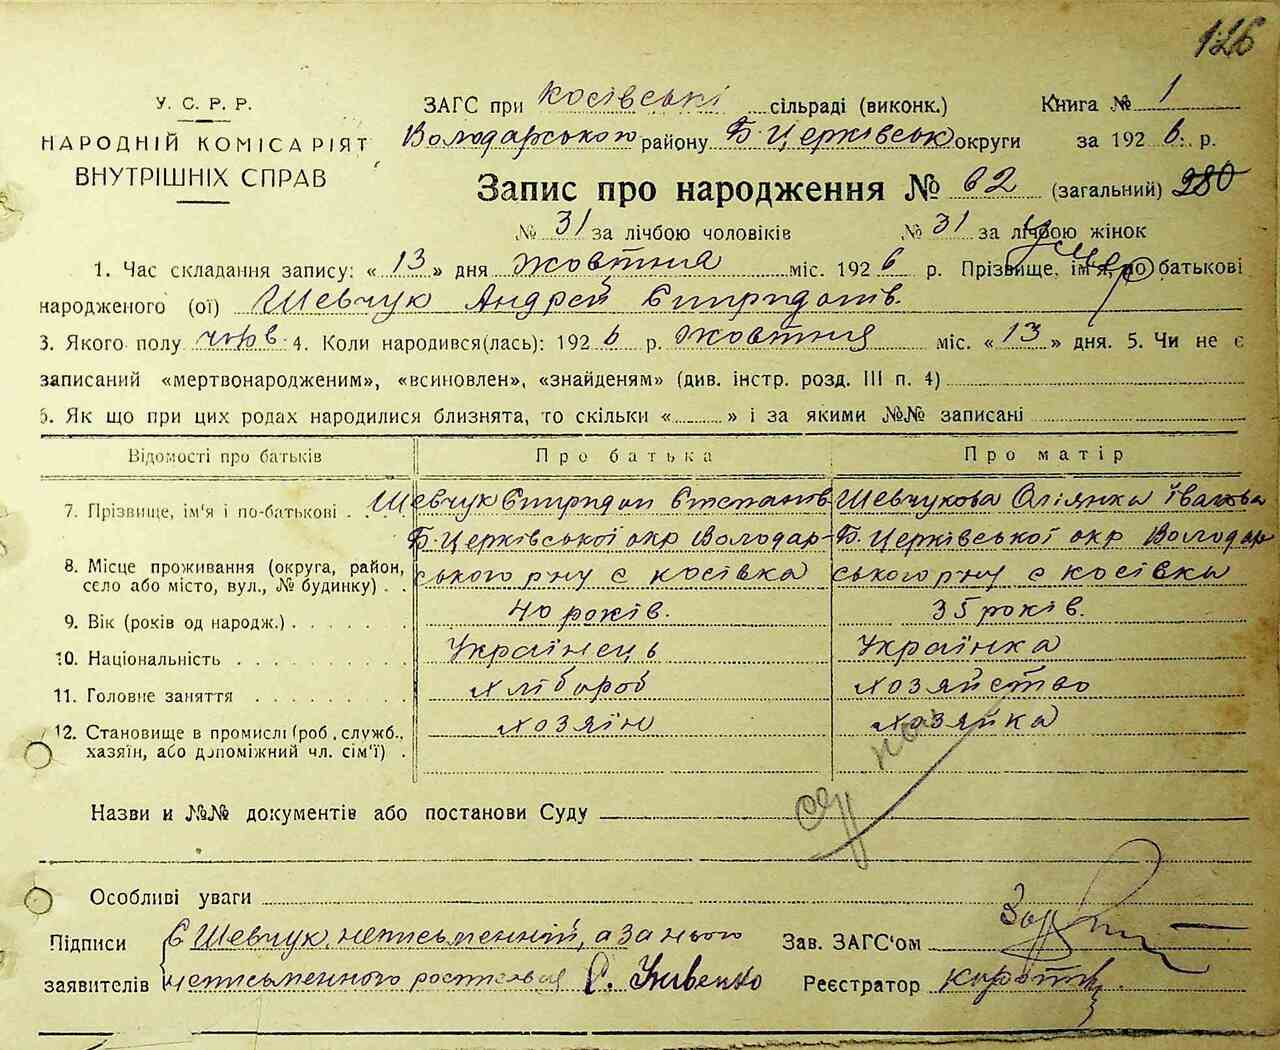 126
У. С. Р. Р.
НАРОДНІЙ КОМІСАРІЯТ
ВНУТРІШНІХ СПРАВ
ЗАГС при Косівські сільраді (виконк.)
Книга № 1
Володарського району Б. Церківськ округи за 1926 р.
Запис про народження № 62 (загальний) 280
№ 31 за лічбою чоловіків № 31 за лічбою жінок
1. Час складання запису: « 13 » дня жовтня міс. 1926 р. Прізвище, ім'я, по батькові
народженого (ої) Шевчук Андрей Спиридонів.
3. Якого полу чолов. 4. Коли народився(лась): 1926 р. жовтня міс. « 13 » дня. 5. Чи не є
записаний «мертвонародженим», «всиновлен», «знайденям» (див. інстр. розд. III п. 4)
6. Як що при цих родах народилися близнята, то скільки « » і за якими №№ записані
Відомості про батьків Про батька Про матір
7. Прізвище, ім'я і по-батькові . Шевчук Спиридон Степанів Шевчукова Оліянка Іванова
Б. Церківської окр Володар- Б. Церківської окр Володар
8. Місце проживання (округа, район,
село або місто, вул., № будинку) . . ського рну с Косівка ського рну с Косівка
9. Вік (років од народж.) . 40 років. 35 років.
10. Національність Українець Українка
11. Головне заняття хлібороб хозяйство
12. Становище в промислі (роб., службб., хозяїн хозяйка
хазяїн, або допоміжний чл. сім'ї) .
Назви и №№ документів або постанови Суду
Особливі уваги
Підписи С Шевчук неписьменний, а за нього Зав. ЗАГС'ом
заявителів неписьменного С. Реєстратор